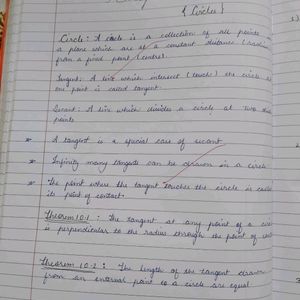 { Circles }
Circle : A circle is a collection of all points
a plane which are at a constant distance (radius
from a fixed point (centre).
Tangent : A line which intersect (touch) the circle
one point is called tangent.
Secant : A line which divides a circle at two
points
A tangent is a special case of secant
Infinity many tangents can be drawn in a circle
The point where the tangent touches the circle is called
its point of contact.
Theorem 10.1 : The tangent at any point of a
is perpendicular to the radius through the point of
Theorem 10.2 : The length of the tangent drawn
from an external point to a circle are equal